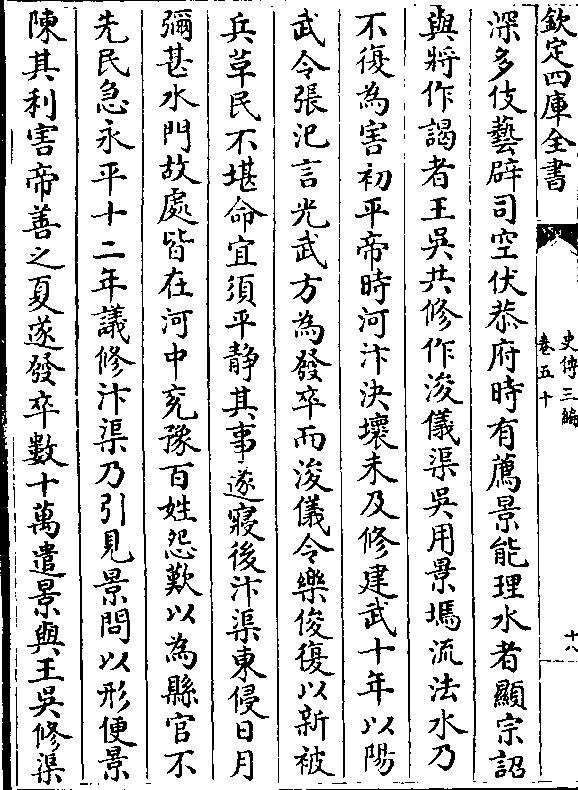 欽定四庫全書
史傳三編
卷五十
十八
深多伎藝辟司空伏恭府時有薦景能理水者顯宗詔
與將作謁者王吳共修作浚儀渠吳用景墕流法水乃
不復為害初平帝時河汴決壞未及修建武十年以陽
武令張汜言光武方為發卒而浚儀令樂俊復以新被
兵革民不堪命宜須平静其事遂寢後汴渠東侵日月
彌甚水門故處皆在河中兖豫百姓怨歎以為縣官不
先民急永平十二年議修汴渠乃引見景問以形便景
陳其利害帝善之夏遂發卒數十萬遣景與王吳修渠